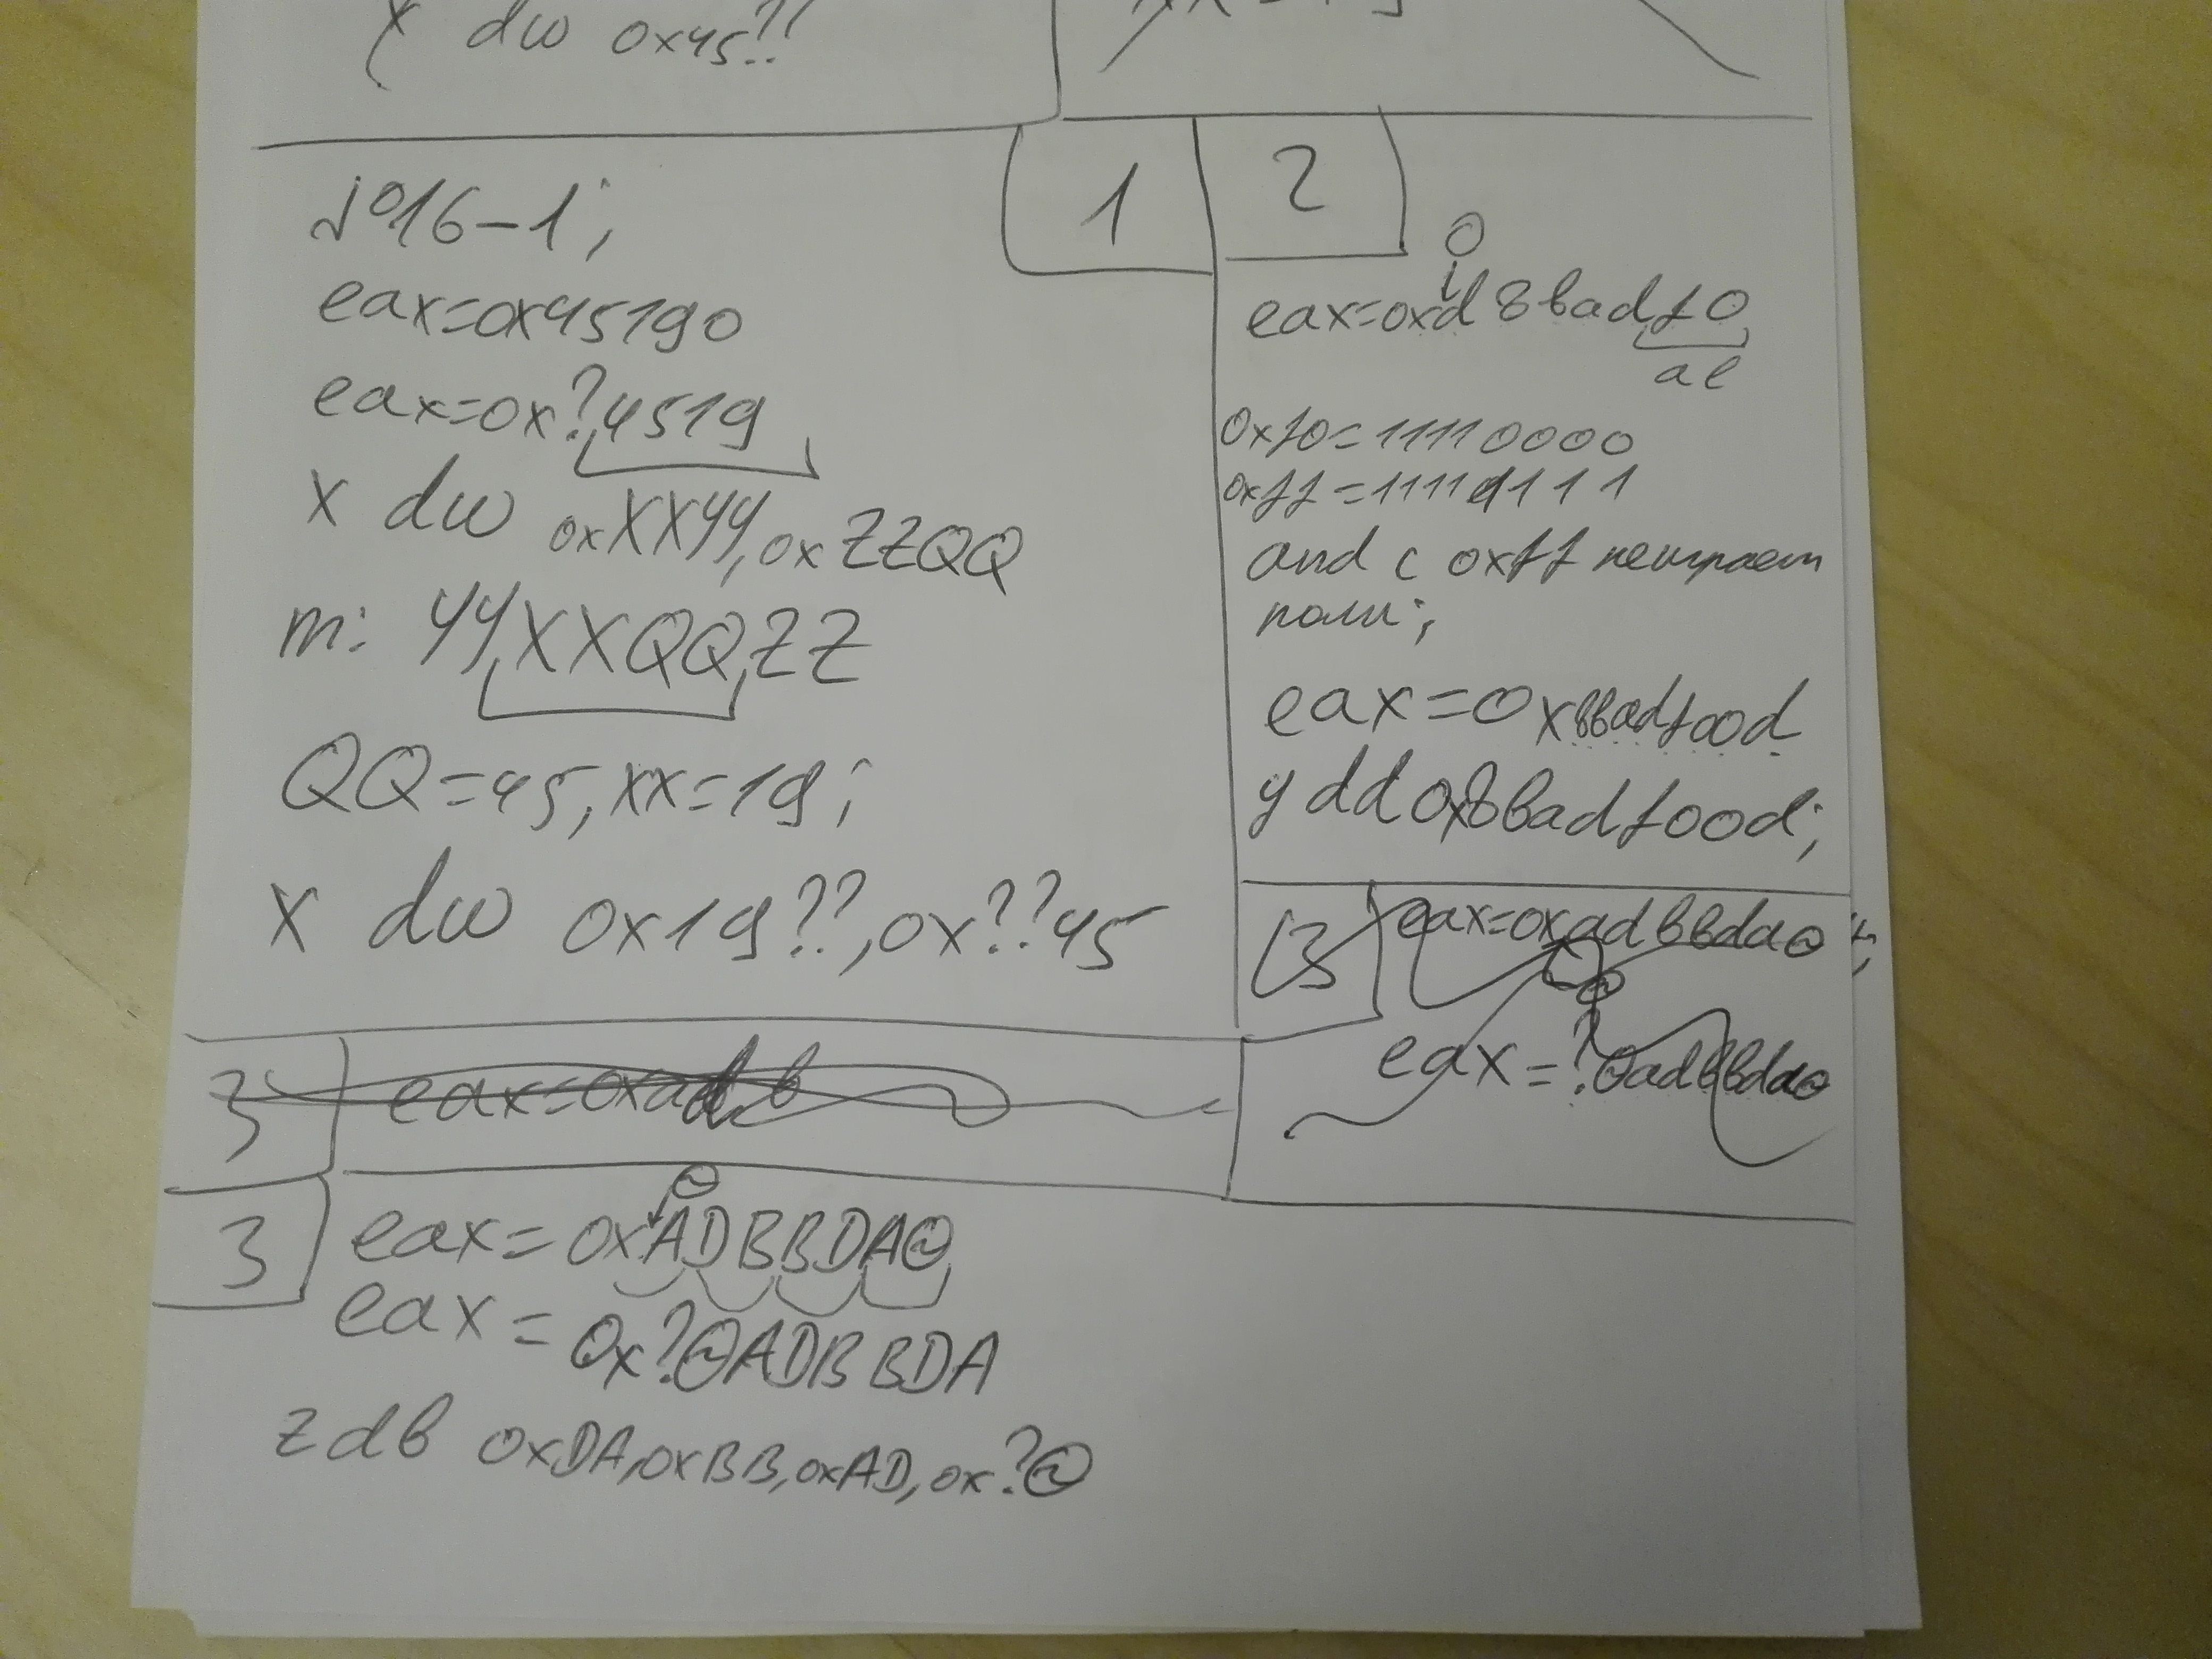 x dw 0x45??
№16-1;
1
eax=0x45190
eax=0x?4519
x dw 0xXXYY, 0xZZQQ
m: YYXXQQZZ
QQ=45, XX=19;
x dw 0x19??, 0x??45
2
0
eax=0xd8badf0
al
0xf0=11110000
0xff=11111111
and с 0xff не играет
роли;
eax=0x8badf00d
y dd 0x8badf00d;
3
eax=0xadbbda0
eax=?0adbbda0
3
eax=0xadb
3
0
eax=0xADBBDA0
eax=0x?0ADBBDA
z db 0xDA, 0xBB, 0xAD, 0x?0